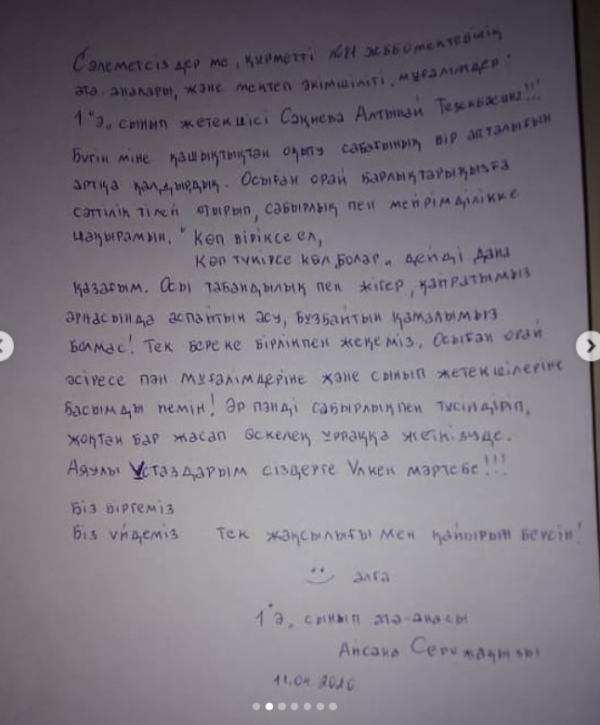 Сәлеметсіздер ме, құрметті №21 жббомектебінің
ата-аналары, және мектеп әкімшілігі, мұғалімдер!
1 "Ә" сынып жетекшісі Алтынай !!!
Бүгін міне қашықтықтан оқыту сабағының бір апталығын
артқа қалдырдық. Осыған орай барлықтарыңызға
сәттілік тілей отырып, сабырлық пен мейрімділікке
шақырамын. "Көп біріксе ел,
Көп түкірсе көл болар" дейді дана
қазағым. Осы табандылық пен жігер, қайратымыз
арқасында аспайтын асу, бұзбайтын қамалымыз
болмас! Тек береке бірлікпен жеңеміз. Осыған орай
әсіресе пән мұғалімдеріне және сынып жетекшілеріне
басымды иемін! Әр пәнді сабырлықпен түсіндіріп,
жоқтан бар жасап өскелең ұрпаққа жеткізуде.
Аяулы Ұстаздарым сіздерге Үлкен мәртебе!!!
Біз біргеміз
Біз үйдеміз Тек жақсылығы мен қайырын берсін!
алға
1 "Ә" сынып ата-анасы
Айсана
11.04.2020